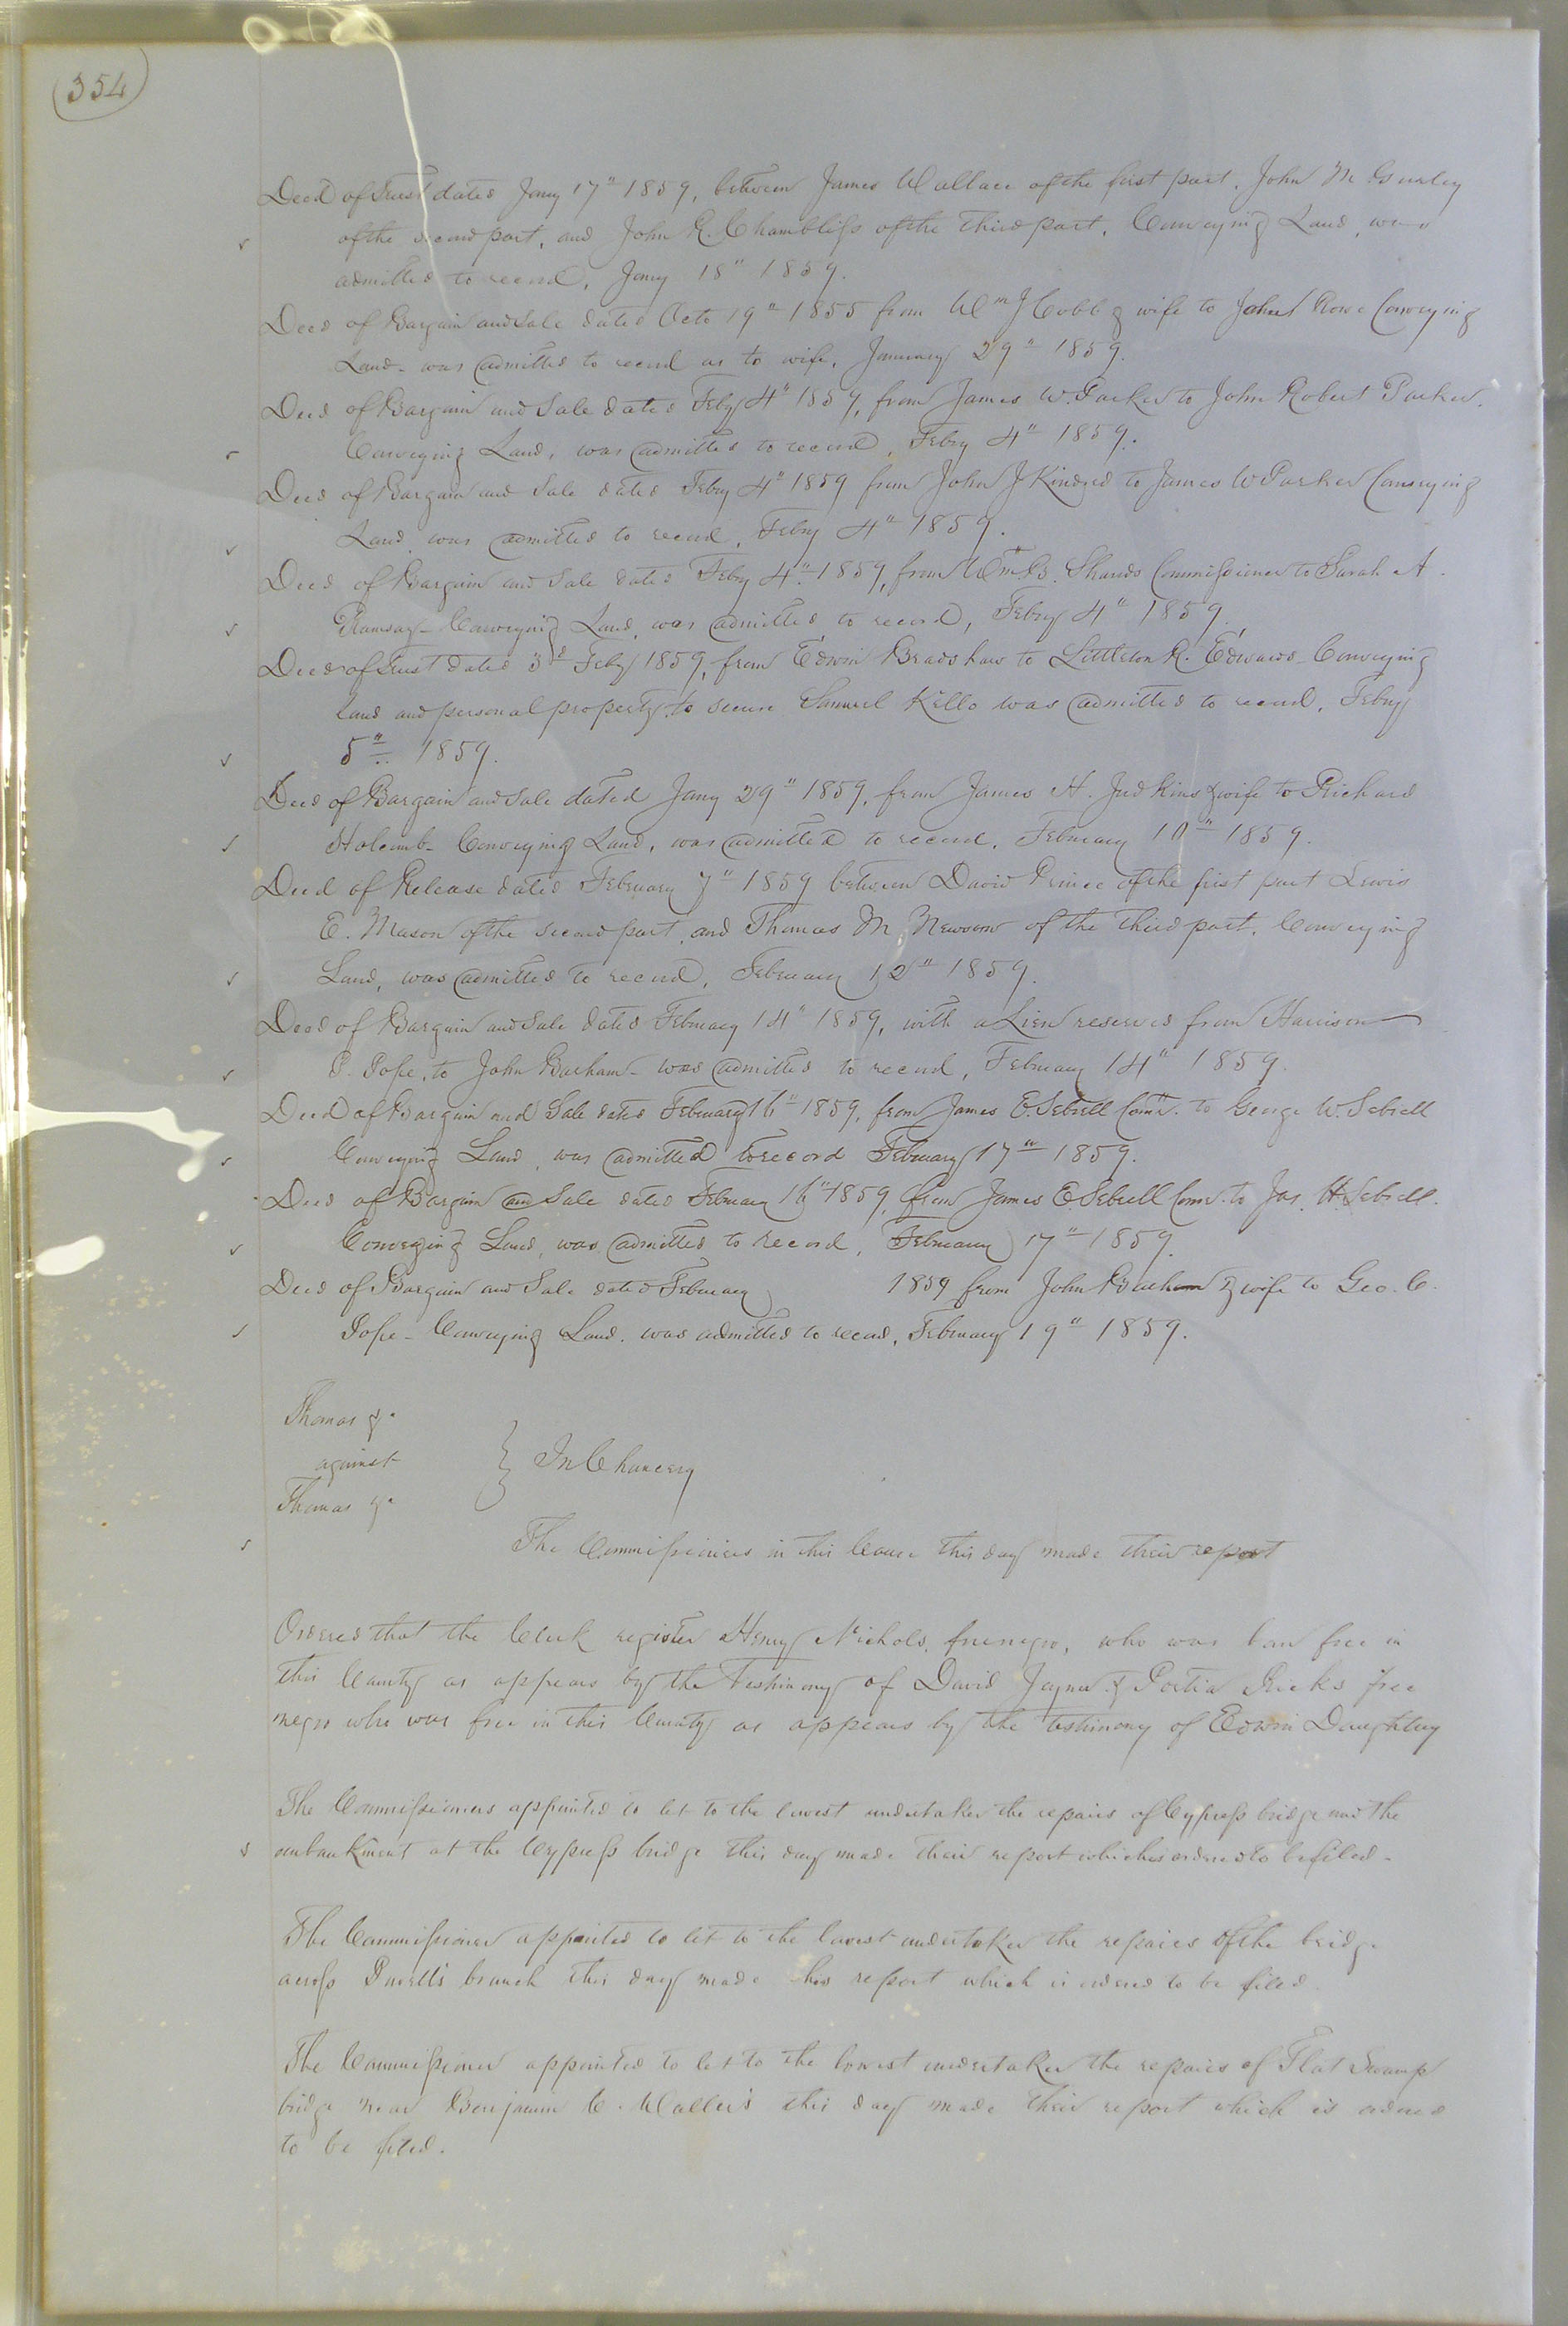 354
Deed of Trust dated Jany 17" 1859, between James Wallace of the first part, John M Gurley
of the second part, and John R. Chambliss of the third part, Conveying Land, was
admitted to record, Jany 18" 1859.
Deed of Bargain and Sale dated Octo 19" 1855 from Wm J Cobb & wife to John Rowe Conveying
Land - was admitted to record as to wife, January 29" 1859.
Deed of Bargain and Sale dated Feby 4" 1859, from James W. Parker to John Robert Parker.
Conveying Land, was admitted to record, Feby 4" 1859.
Deed of Bargain and Sale dated Feby 4" 1859 from John J Kindred to James W Parker Conveying
Land, was admitted to record, Feby 4" 1859.
Deed of Bargain and Sale dated Feby 4" 1859, from Wm B. Shands Commissioner to Sarah A.
Ramsay - Conveying Land, was admitted to record, Feby 4" 1859.
Deed of Trust dated 3d Feby 1859, from Edwin Bradshaw to Littleton R. Edwards Conveying
land and personal property, to secure Samuel Kello was admitted to record, Feby
5" 1859.
Deed of Bargain and Sale dated Jany 29" 1859, from James H. Judkins & wife to Richard
Holcomb - Conveying Land, was admitted to record, February 10" 1859.
Deed of Release dated February 7" 1859 between David Prince of the first part Lewis
E. Mason of the second part, and Thomas M. Newsom of the third part, Conveying
Land, was admitted to record, February 12" 1859.
Deed of Bargain and Sale dated February 14" 1859, with a Lien reserved from Harrison
P. Pope, to John Barham - was admitted to record, February 14" 1859.
Deed of Bargain and Sale dated February 16" 1859, from James E. Sebrell Comr. to George W. Sebrell
Conveying Land, was admitted to record February 17" 1859.
Deed of Bargain and Sale dated February 16" 1859, from James E. Sebrell Comr. to Jas. H. Sebrell.
Conveying Land, was admitted to record, February 17" 1859.
Deed of Bargain and Sale dated February 1859 from John Barham & wife to Geo. C.
Pope - Conveying Land. was admitted to record, February 19" 1859.
Thomas &c
against } In Chancery
Thomas &c
The Commissioners in this Cause this day made their report
Ordered that the Clerk register Henry Nichols, free negro, who was born free in
this County as appears by the testimony of David Joyner & Portia Ricks free
negro who was free in this County as appears by the testimony of Edwin Daughtrey
The Commissioners appointed to let to the lowest undertaker the repairs of Cypress bridge and the
embankment at the Cypress bridge this day made their report which is ordered to be filed -
The Commissioner appointed to let to the lowest undertaker the repairs of the bridge
across branch this day made his report which is ordered to be filed.
The Commissioner appointed to let to the lowest undertaker the repairs of Flat Swamp
bridge near Benjamin C. Waller's this day made their report which is ordered
to be filed.